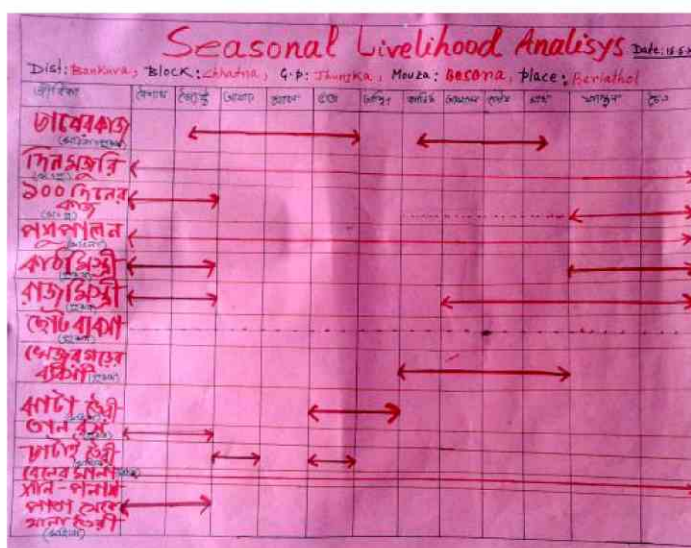 Seasonal Livelihood Analisys Date:
Dist: Bankura, Block: Chhatna, G.P: Jhunjka, Mouza: Besona, Place: Beriathol
জীবিকা বৈশাখ জ্যৈষ্ঠ আষাঢ় শ্রাবণ ভাদ্র আশ্বিন কার্তিক অগ্রহায়ণ পৌষ মাঘ ফাল্গুন চৈত্র
চাষের কাজ
দিনমজুরি
১০০ দিনের
কাজ
পশুপালন
কাঠমিস্ত্রী
রাজমিস্ত্রী
ছোট ব্যবসা
খেজুর গুড়ের
ব্যবসা
ঝাঁটা তৈরী
তাল রস
চাটাই তৈরী
বেলের মালা
শাল-পলাশ
পাতা থেকে
থালা তৈরী